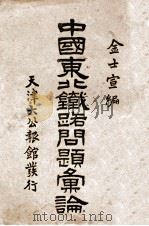 金士宣編
中國東北鐵路問題彙論
天津大公報館發行
www.mtoou.info